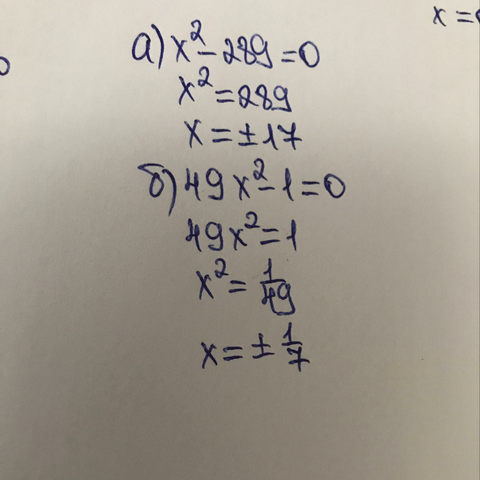 x =
а) x² - 289 = 0
x² = 289
x = ±17
б) 49x² - 1 = 0
49x² = 1
x² = 1/49
x = ± 1/7